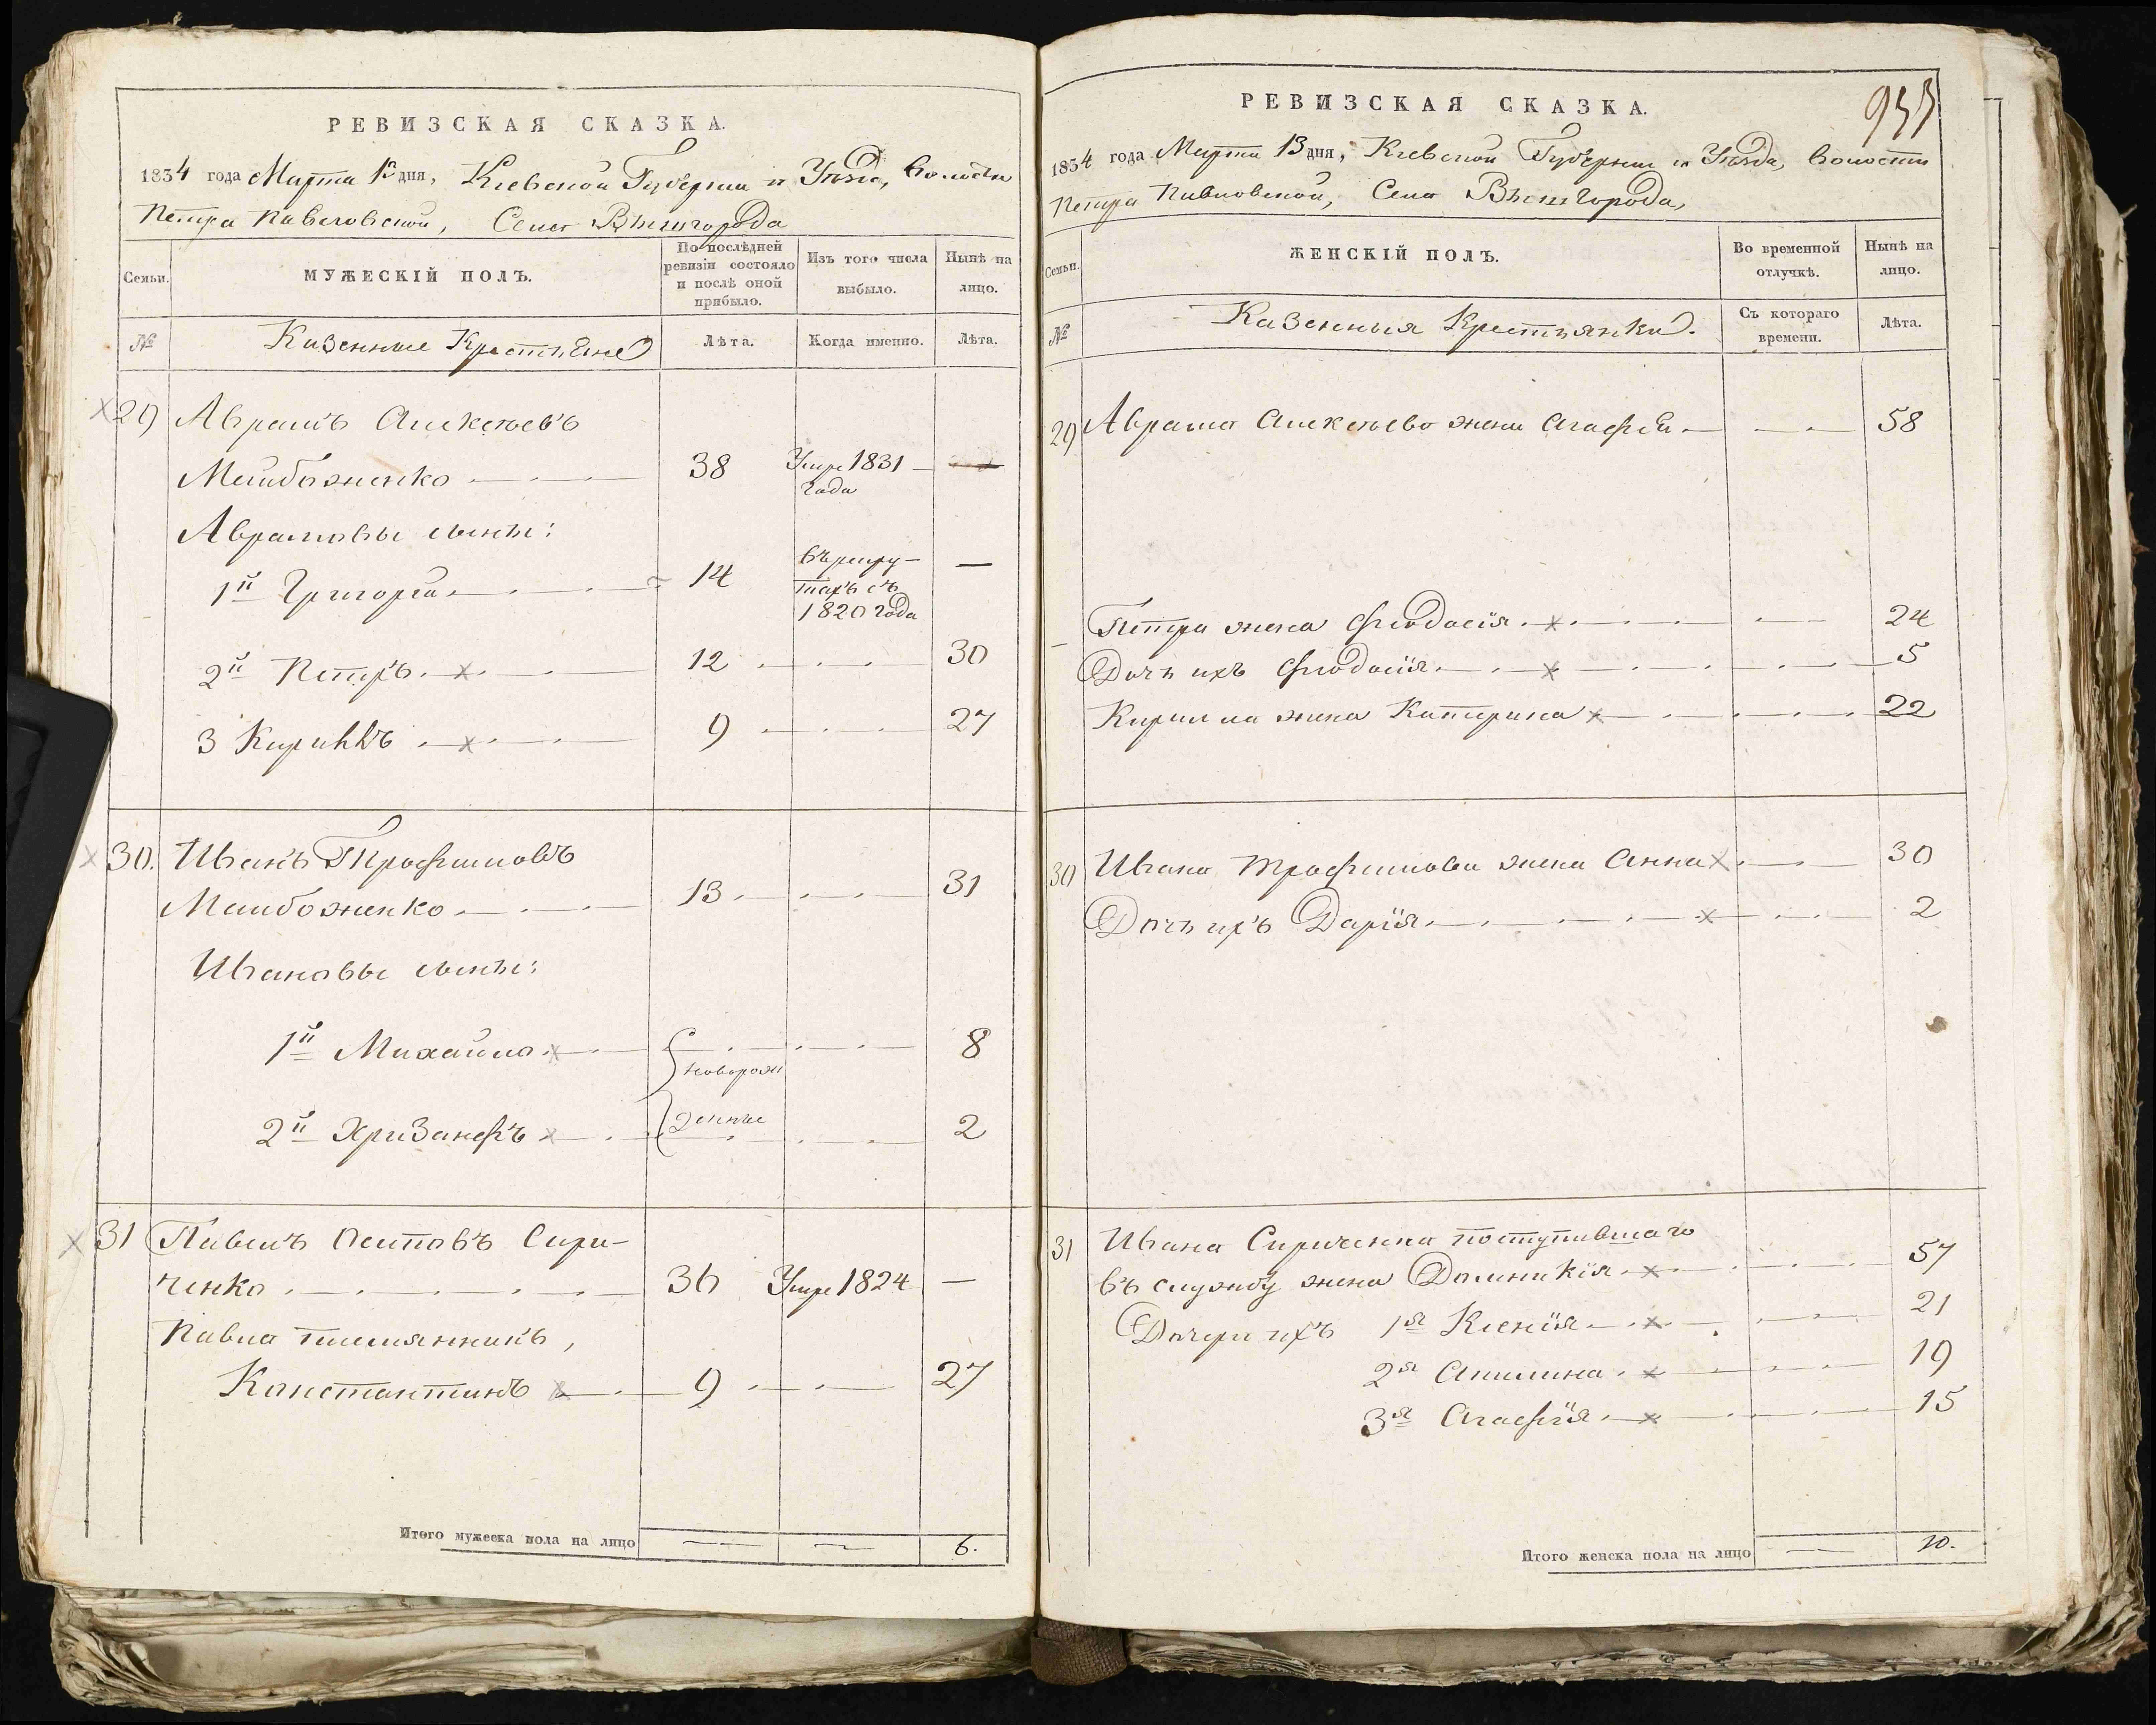 РЕВИЗСКАЯ СКАЗКА.
1834 года Марта 13 дня, Киевской Губернии и Уѣзда, Волости
Петра Павловской, Села Вышгорода
Семьи.
МУЖЕСКІЙ ПОЛЪ.
По послѣдней
ревизіи состояло
и послѣ оной
прибыло.
Изъ того числа
выбыло.
Нынѣ на
лицо.
№
Казенные Крестьяне
Лѣта.
Когда именно.
Лѣта.
29 Аврамъ Алексѣевъ
Майбоженко 38 Умре 1831
года
Аврамовы сыны:
1й Григорій 14 въ рекру-
тахъ съ
1820 года
2й Петръ 12 30
3 Кирилъ 9 27
30. Иванъ Трофимовъ
Майбоженко 13 31
Ивановы сыны:
1й Михайло 8
новорож
2й Хризанфъ денные 2
31 Павелъ Осиповъ Сири-
ченко 36 Умре 1824
Павла племянникъ,
Константинъ 9 27
Итого мужеска пола на лицо 6.
РЕВИЗСКАЯ СКАЗКА.
1834 года Марта 13 дня, Киевской Губернии и Уѣзда, Волости
Петра Павловской, Села Вышгорода,
Семьи.
ЖЕНСКІЙ ПОЛЪ.
Во временной
отлучкѣ.
Нынѣ на
лицо.
№
Казенныя Крестьянки.
Съ котораго
времени.
Лѣта.
29 Аврама Алексѣева жена Агафія 58
Петра жена Феодосія 24
Дочь ихъ Феодосія 5
Кирилла жена Катерина 22
30 Ивана Трофимова жена Анна 30
Дочь ихъ Дарія 2
31 Ивана Сириченка поступившаго
въ службу жена Домникія 57
Дочери ихъ 1я Ксенія 21
2я Акилина 19
3я Агафія 15
Итого женска пола на лицо 10.